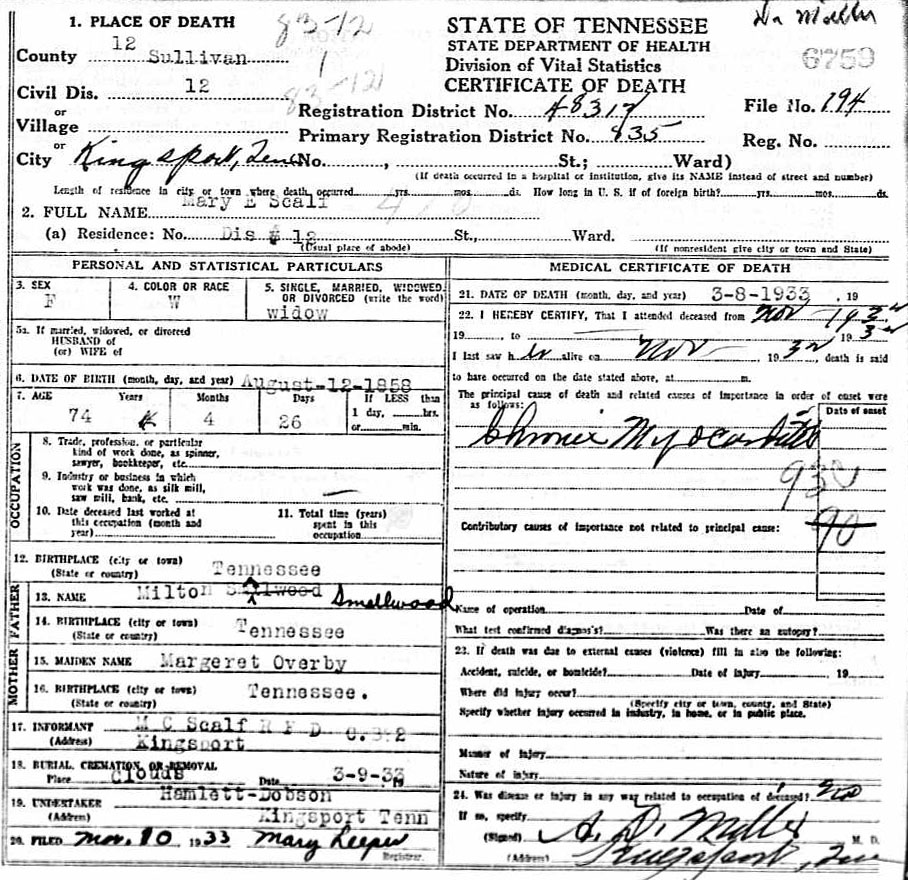 1. PLACE OF DEATH
83-12
County 12 Sullivan
1
Civil Dis. 12
83-121
or
Village
or
City Kingsport, Tenn No. , St.; Ward)
STATE OF TENNESSEE
STATE DEPARTMENT OF HEALTH
Division of Vital Statistics
CERTIFICATE OF DEATH
Dr Miller
6759
Registration District No. 48317
File No. 194
Primary Registration District No. 835
Reg. No.
(If death occurred in a hospital or institution, give its NAME instead of street and number)
Length of residence in city or town where death occurred yrs. mos. ds. How long in U. S. if of foreign birth? yrs. mos. ds.
2. FULL NAME Mary E Scalf
(a) Residence: No. Dis # 12 St., Ward.
(Usual place of abode) (If nonresident give city or town and State)
PERSONAL AND STATISTICAL PARTICULARS
3. SEX
F
4. COLOR OR RACE
W
5. SINGLE, MARRIED, WIDOWED, OR DIVORCED (write the word)
widow
5a. If married, widowed, or divorced
HUSBAND of
(or) WIFE of
6. DATE OF BIRTH (month, day, and year) August-12-1858
7. AGE Years Months Days If LESS than
74 4 26 1 day, hrs.
or min.
OCCUPATION
8. Trade, profession, or particular
kind of work done, as spinner,
sawyer, bookkeeper, etc.
9. Industry or business in which
work was done, as silk mill,
saw mill, bank, etc. —
10. Date deceased last worked at
this occupation (month and
year)
11. Total time (years)
spent in this
occupation
12. BIRTHPLACE (city or town)
(State or country) Tennessee
FATHER
13. NAME Milton Smallwood
14. BIRTHPLACE (city or town)
(State or country) Tennessee
MOTHER
15. MAIDEN NAME Margeret Overby
16. BIRTHPLACE (city or town)
(State or country) Tennessee.
17. INFORMANT M C Scalf R F D
(Address) Kingsport
18. BURIAL, CREMATION, OR REMOVAL
Place Clouds Date 3-9-33, 19
19. UNDERTAKER Hamlett-Dobson
(Address) Kingsport Tenn
20. FILED Mar. 10 1933 Mary Leeper
Registrar.
MEDICAL CERTIFICATE OF DEATH
21. DATE OF DEATH (month, day, and year) 3-8-1933, 19
22. I HEREBY CERTIFY, That I attended deceased from Nov 1932
19 , to , 1932
I last saw her alive on Nov 1932 death is said
to have occurred on the date stated above, at m.
The principal cause of death and related causes of importance in order of onset were
as follows:
Date of onset
Chronic Myocarditis
930
90
Contributory causes of importance not related to principal cause:
Name of operation Date of
What test confirmed diagnosis? Was there an autopsy?
23. If death was due to external causes (violence) fill in also the following:
Accident, suicide, or homicide? Date of injury 19
Where did injury occur?
(Specify city or town, county, and State)
Specify whether injury occurred in industry, in home, or in public place.
Manner of Injury
Nature of injury
24. Was disease or injury in any way related to occupation of deceased? No
If so, specify
(Signed) A. D. Miller M. D.
(Address) Kingsport, Tenn